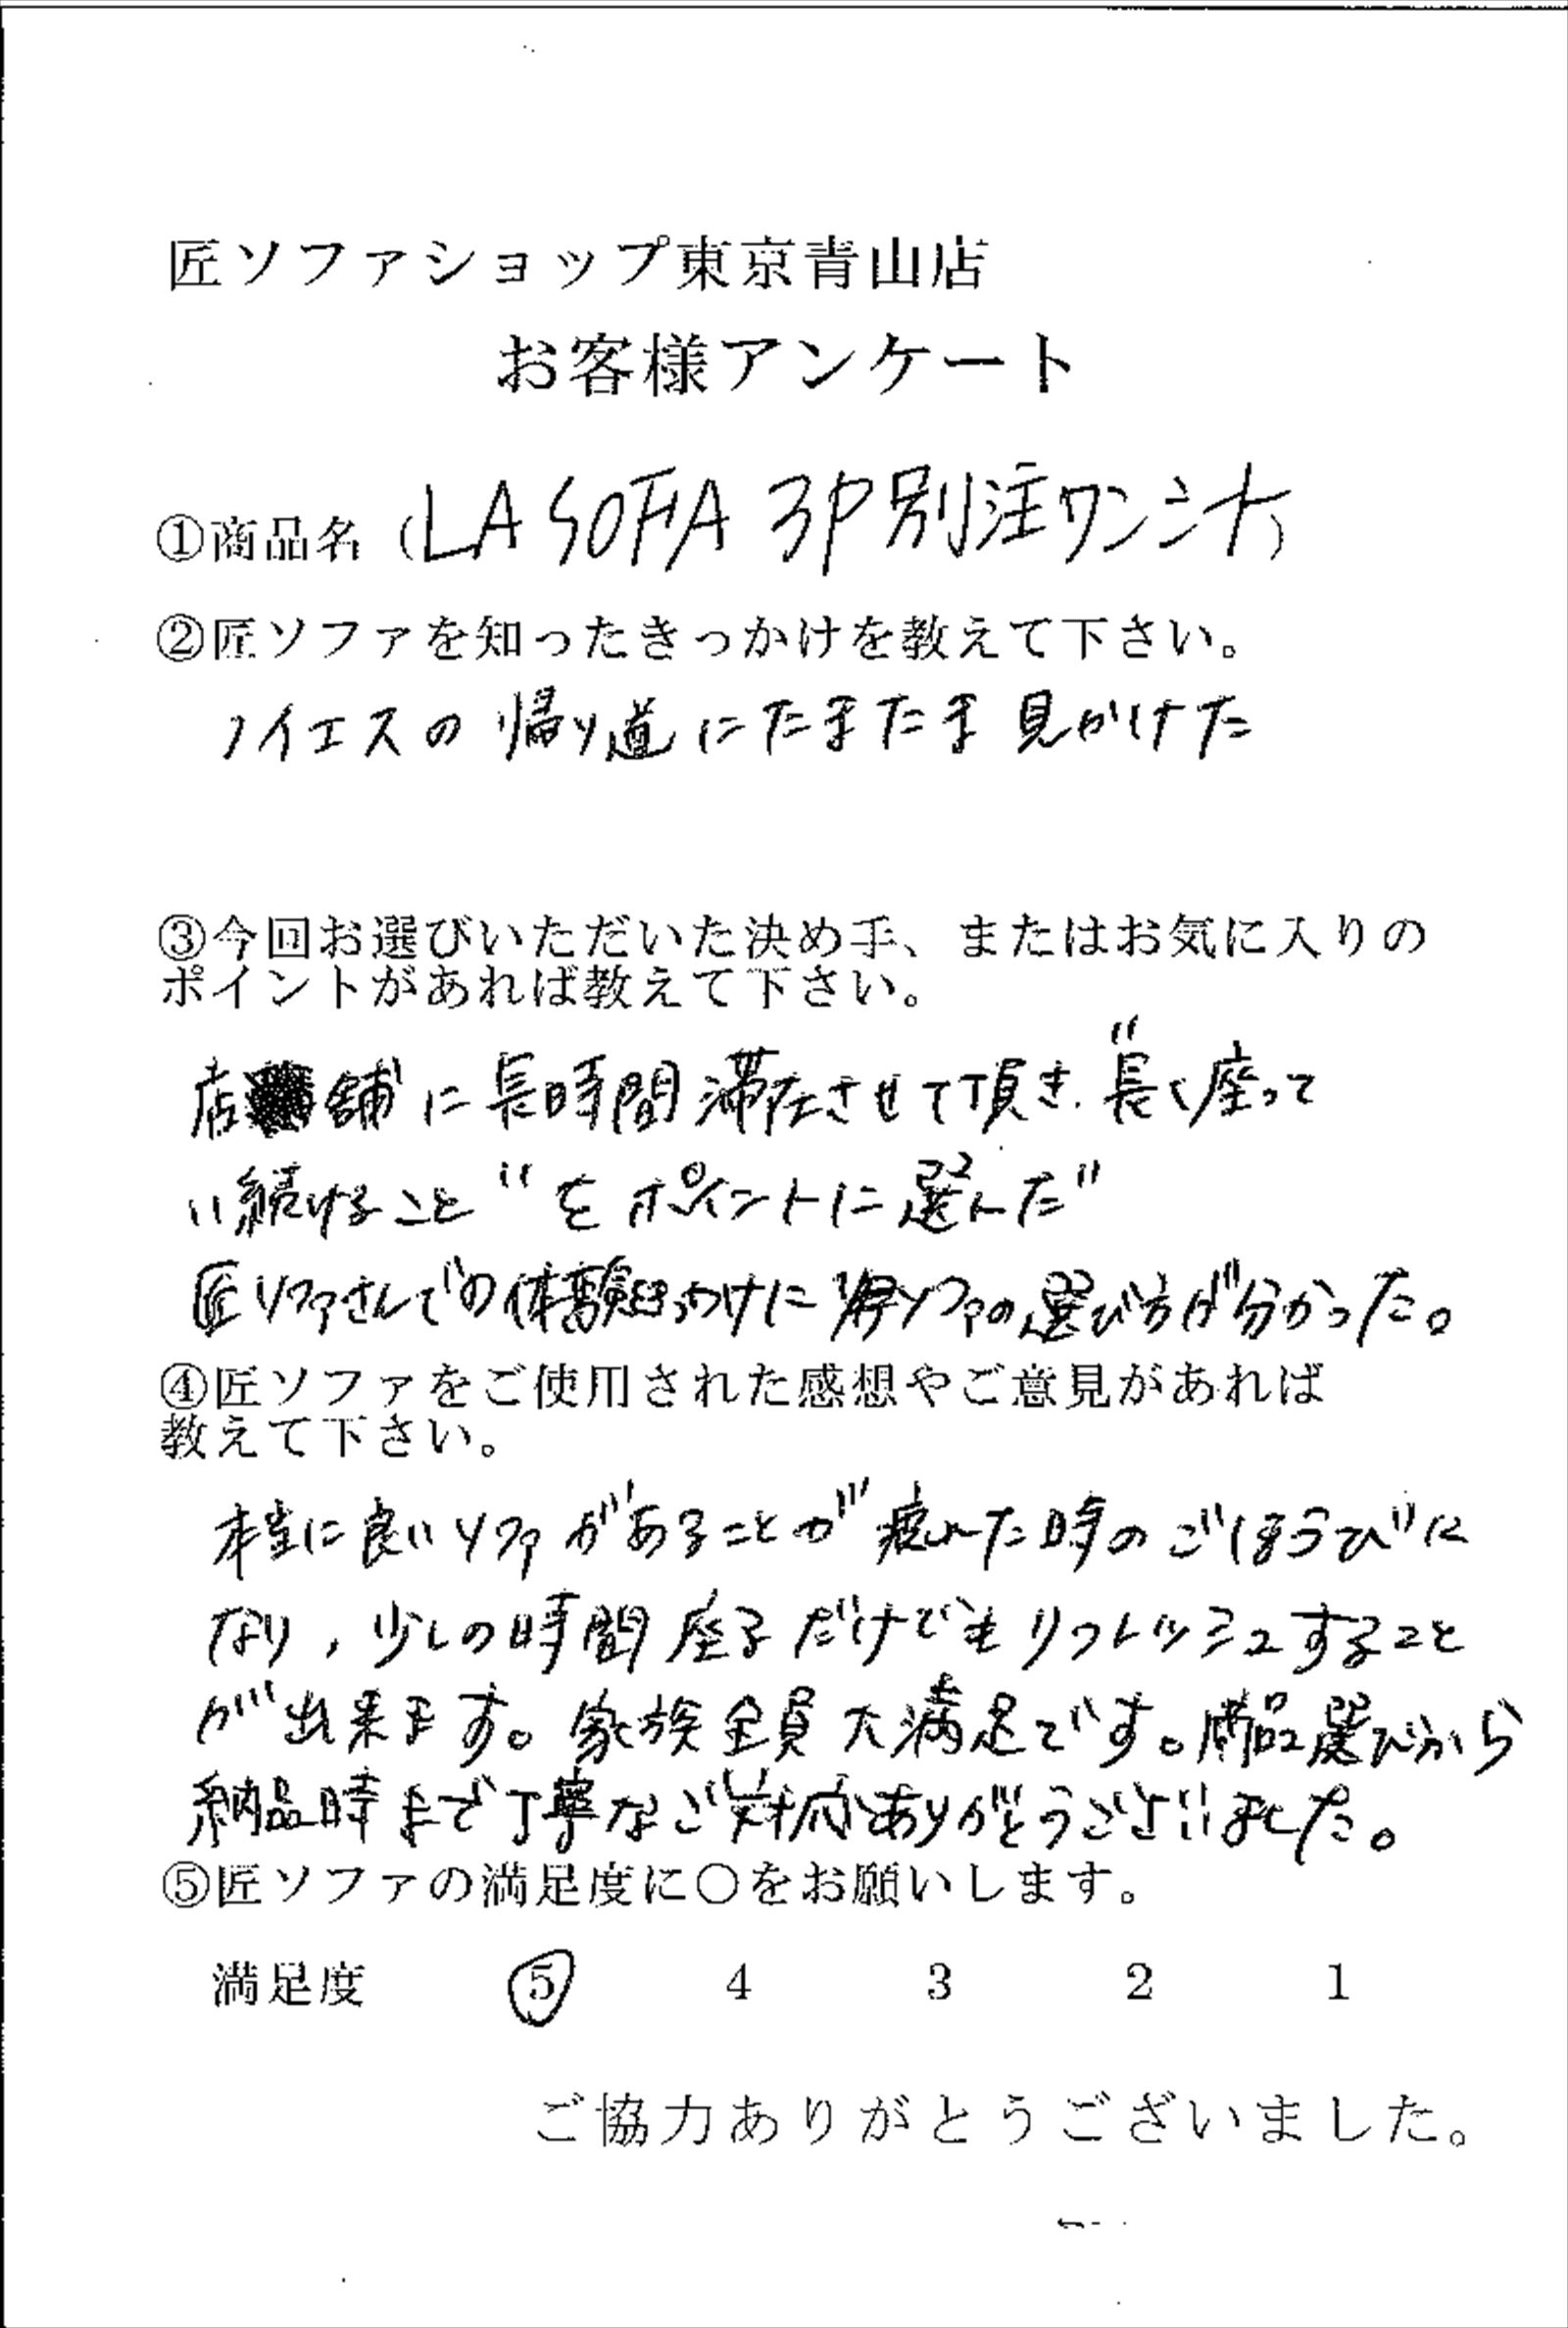 匠ソファショップ東京青山店
お客様アンケート
①商品名（LA SOFA 3P 別注ワンシート）
②匠ソファを知ったきっかけを教えて下さい。
ノイエスの帰り道にたまたま見かけた
③今回お選びいただいた決め手、またはお気に入りの
ポイントがあれば教えて下さい。
店舗に長時間滞在させて頂き、"長く座って
い続けること"をポイントに選んだ"
匠ソファさんでの体験きっかけにソファの選び方が分かった。
④匠ソファをご使用された感想やご意見があれば
教えて下さい。
本当に良いソファがあることが疲れた時のごほうびに
なり、少しの時間座るだけでもリフレッシュすること
が出来ます。家族全員大満足です。商品選びから
納品時まで丁寧なご対応ありがとうございました。
⑤匠ソファの満足度に〇をお願いします。
満足度 5 4 3 2 1
ご協力ありがとうございました。